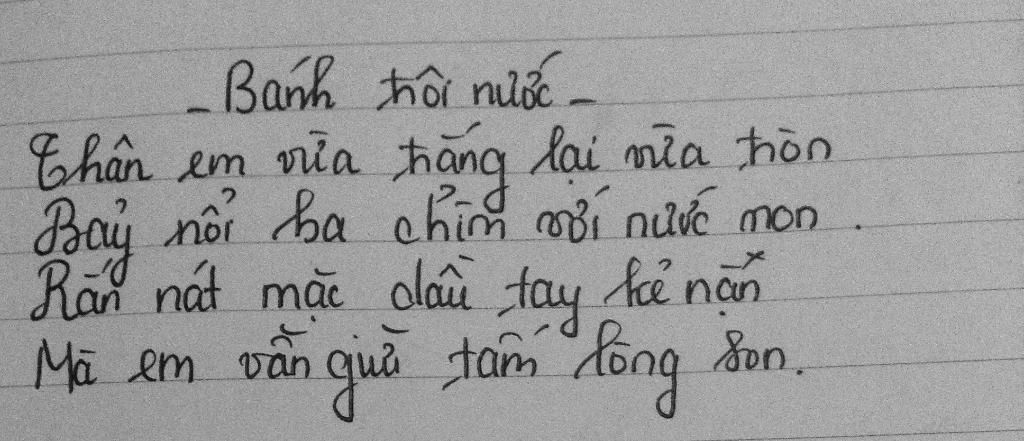 - Bánh trôi nước -
Thân em vừa trắng lại vừa tròn
Bảy nổi ba chìm với nước non.
Rắn nát mặc dầu tay kẻ nặn
Mà em vẫn giữ tấm lòng son.